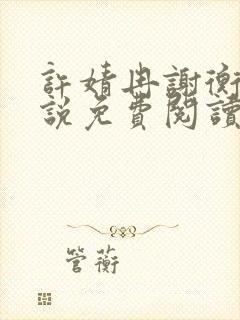 許婧冉謝衡
說免費閱讀
管蘅